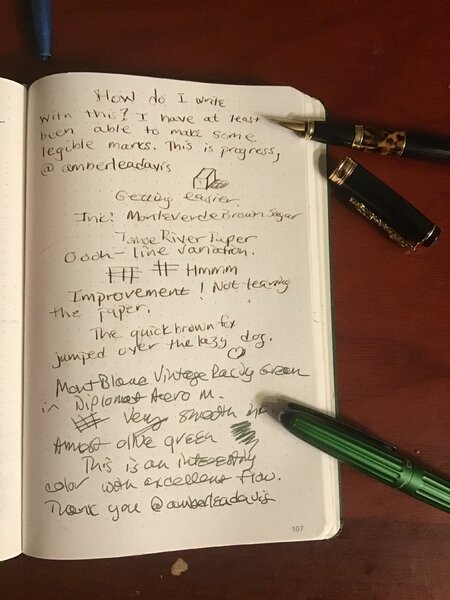 How do I write
with this? I have at least
been able to make some
legible marks. This is progress,
@amberleadavis
Getting easier.
Ink: Monteverde Brown Sugar
River Paper
Oooh - line variation.
Hmmm
Improvement! Not tearing
the paper.
The quick brown fox
jumped over the lazy dog.
MontBlanc Vintage Racing Green
in Diplomat Aero M.
Very smooth ink.
Almost olive green
This is an interesting
color with excellent flow.
Thank you @amberleadavis
107